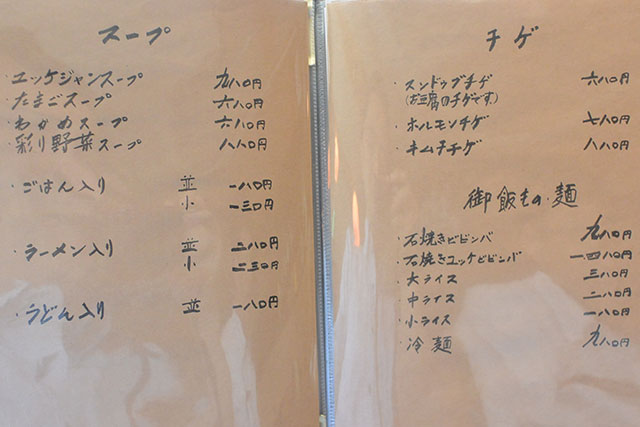 スープ
・ユッケジャンスープ 九八〇円
・たまごスープ 六八〇円
・わかめスープ 六八〇円
・彩り野菜スープ 八八〇円
・ごはん入り 並 一八〇円
小 一三〇円
・ラーメン入り 並 二八〇円
小 二三〇円
・うどん入り 並 一八〇円
チゲ
・スンドゥブチゲ 六八〇円
(お豆腐のチゲです)
・ホルモンチゲ 七八〇円
・キムチチゲ 八八〇円
御飯もの・麺
・石焼きビビンバ 九八〇円
・石焼きユッケビビンバ 一四八〇円
・大ライス 三八〇円
・中ライス 二八〇円
・小ライス 一八〇円
・冷麺 九八〇円